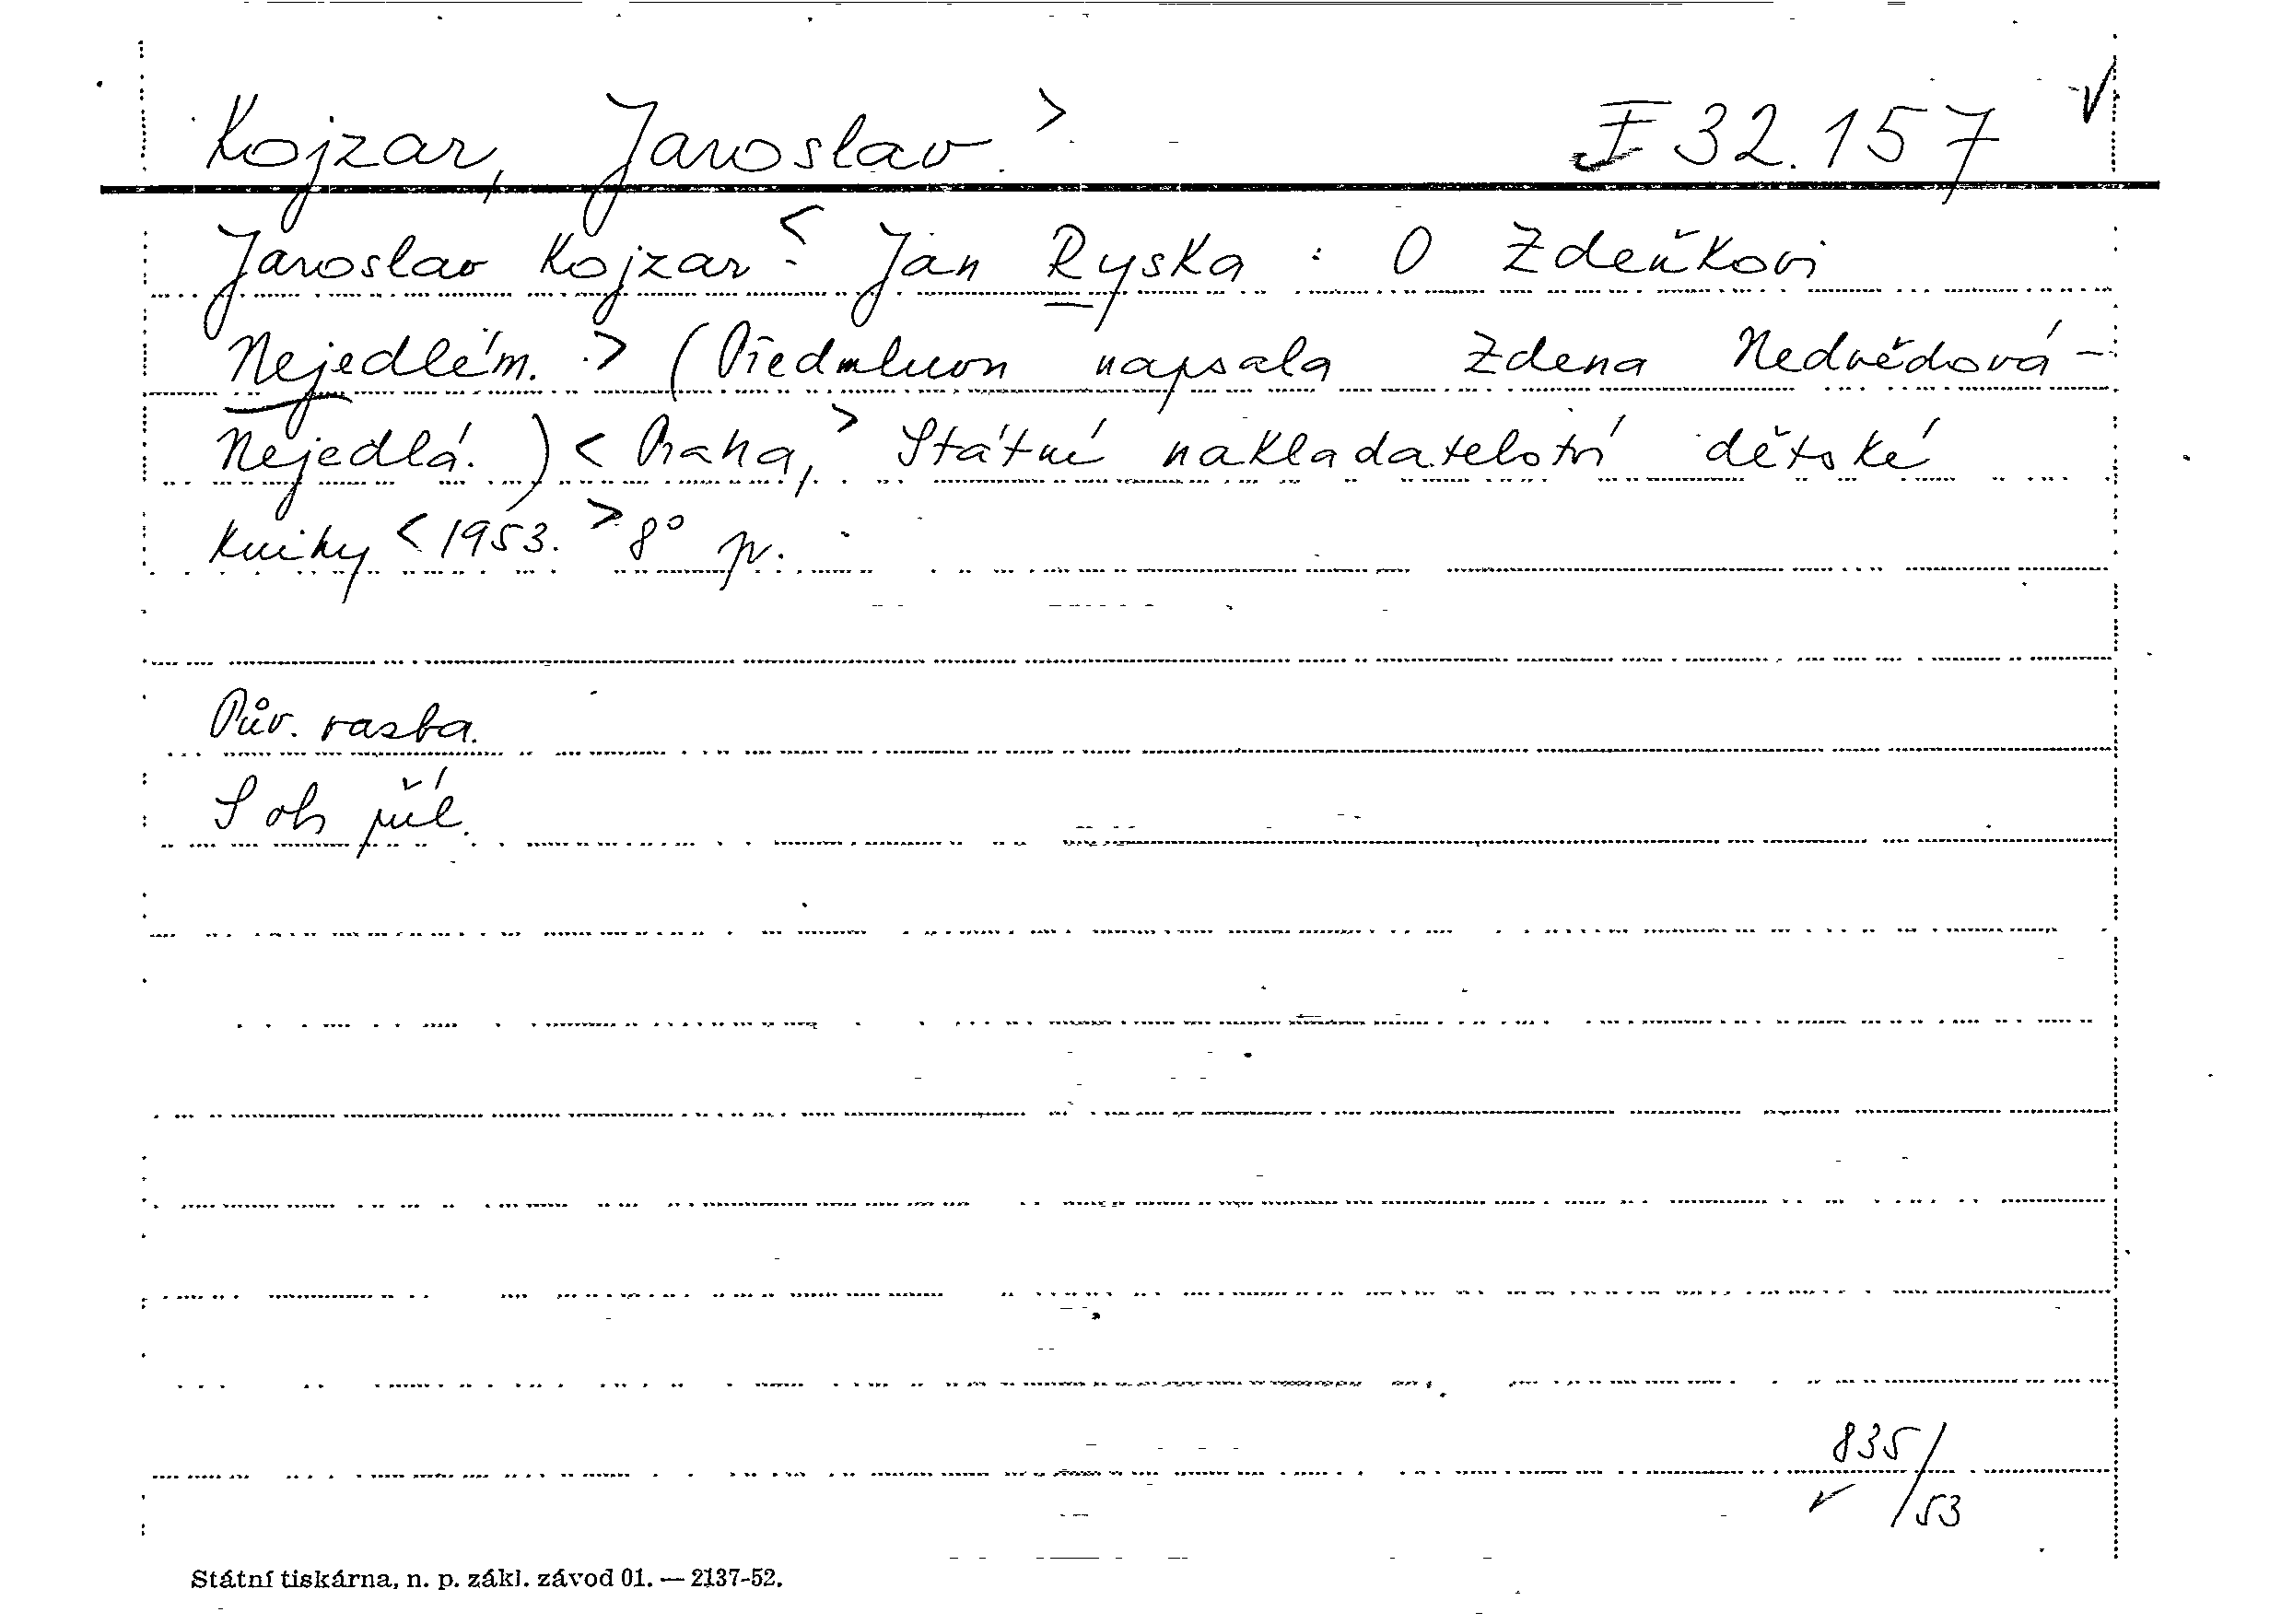 Kojzar, Jaroslav > I 32.157
Jaroslav Kojzar < Jan Ryska : O Zdeňkovi
Nejedlém. > (Předmluvu napsala Zdena Nedvědová-
Nejedlá.) < Praha, > Státní nakladatelství dětské
knihy < 1953. > 8°
Pův. vazba.
S ob příl.
835/
53
Státní tiskárna, n. p. zákl. závod 01. — 2137-52.